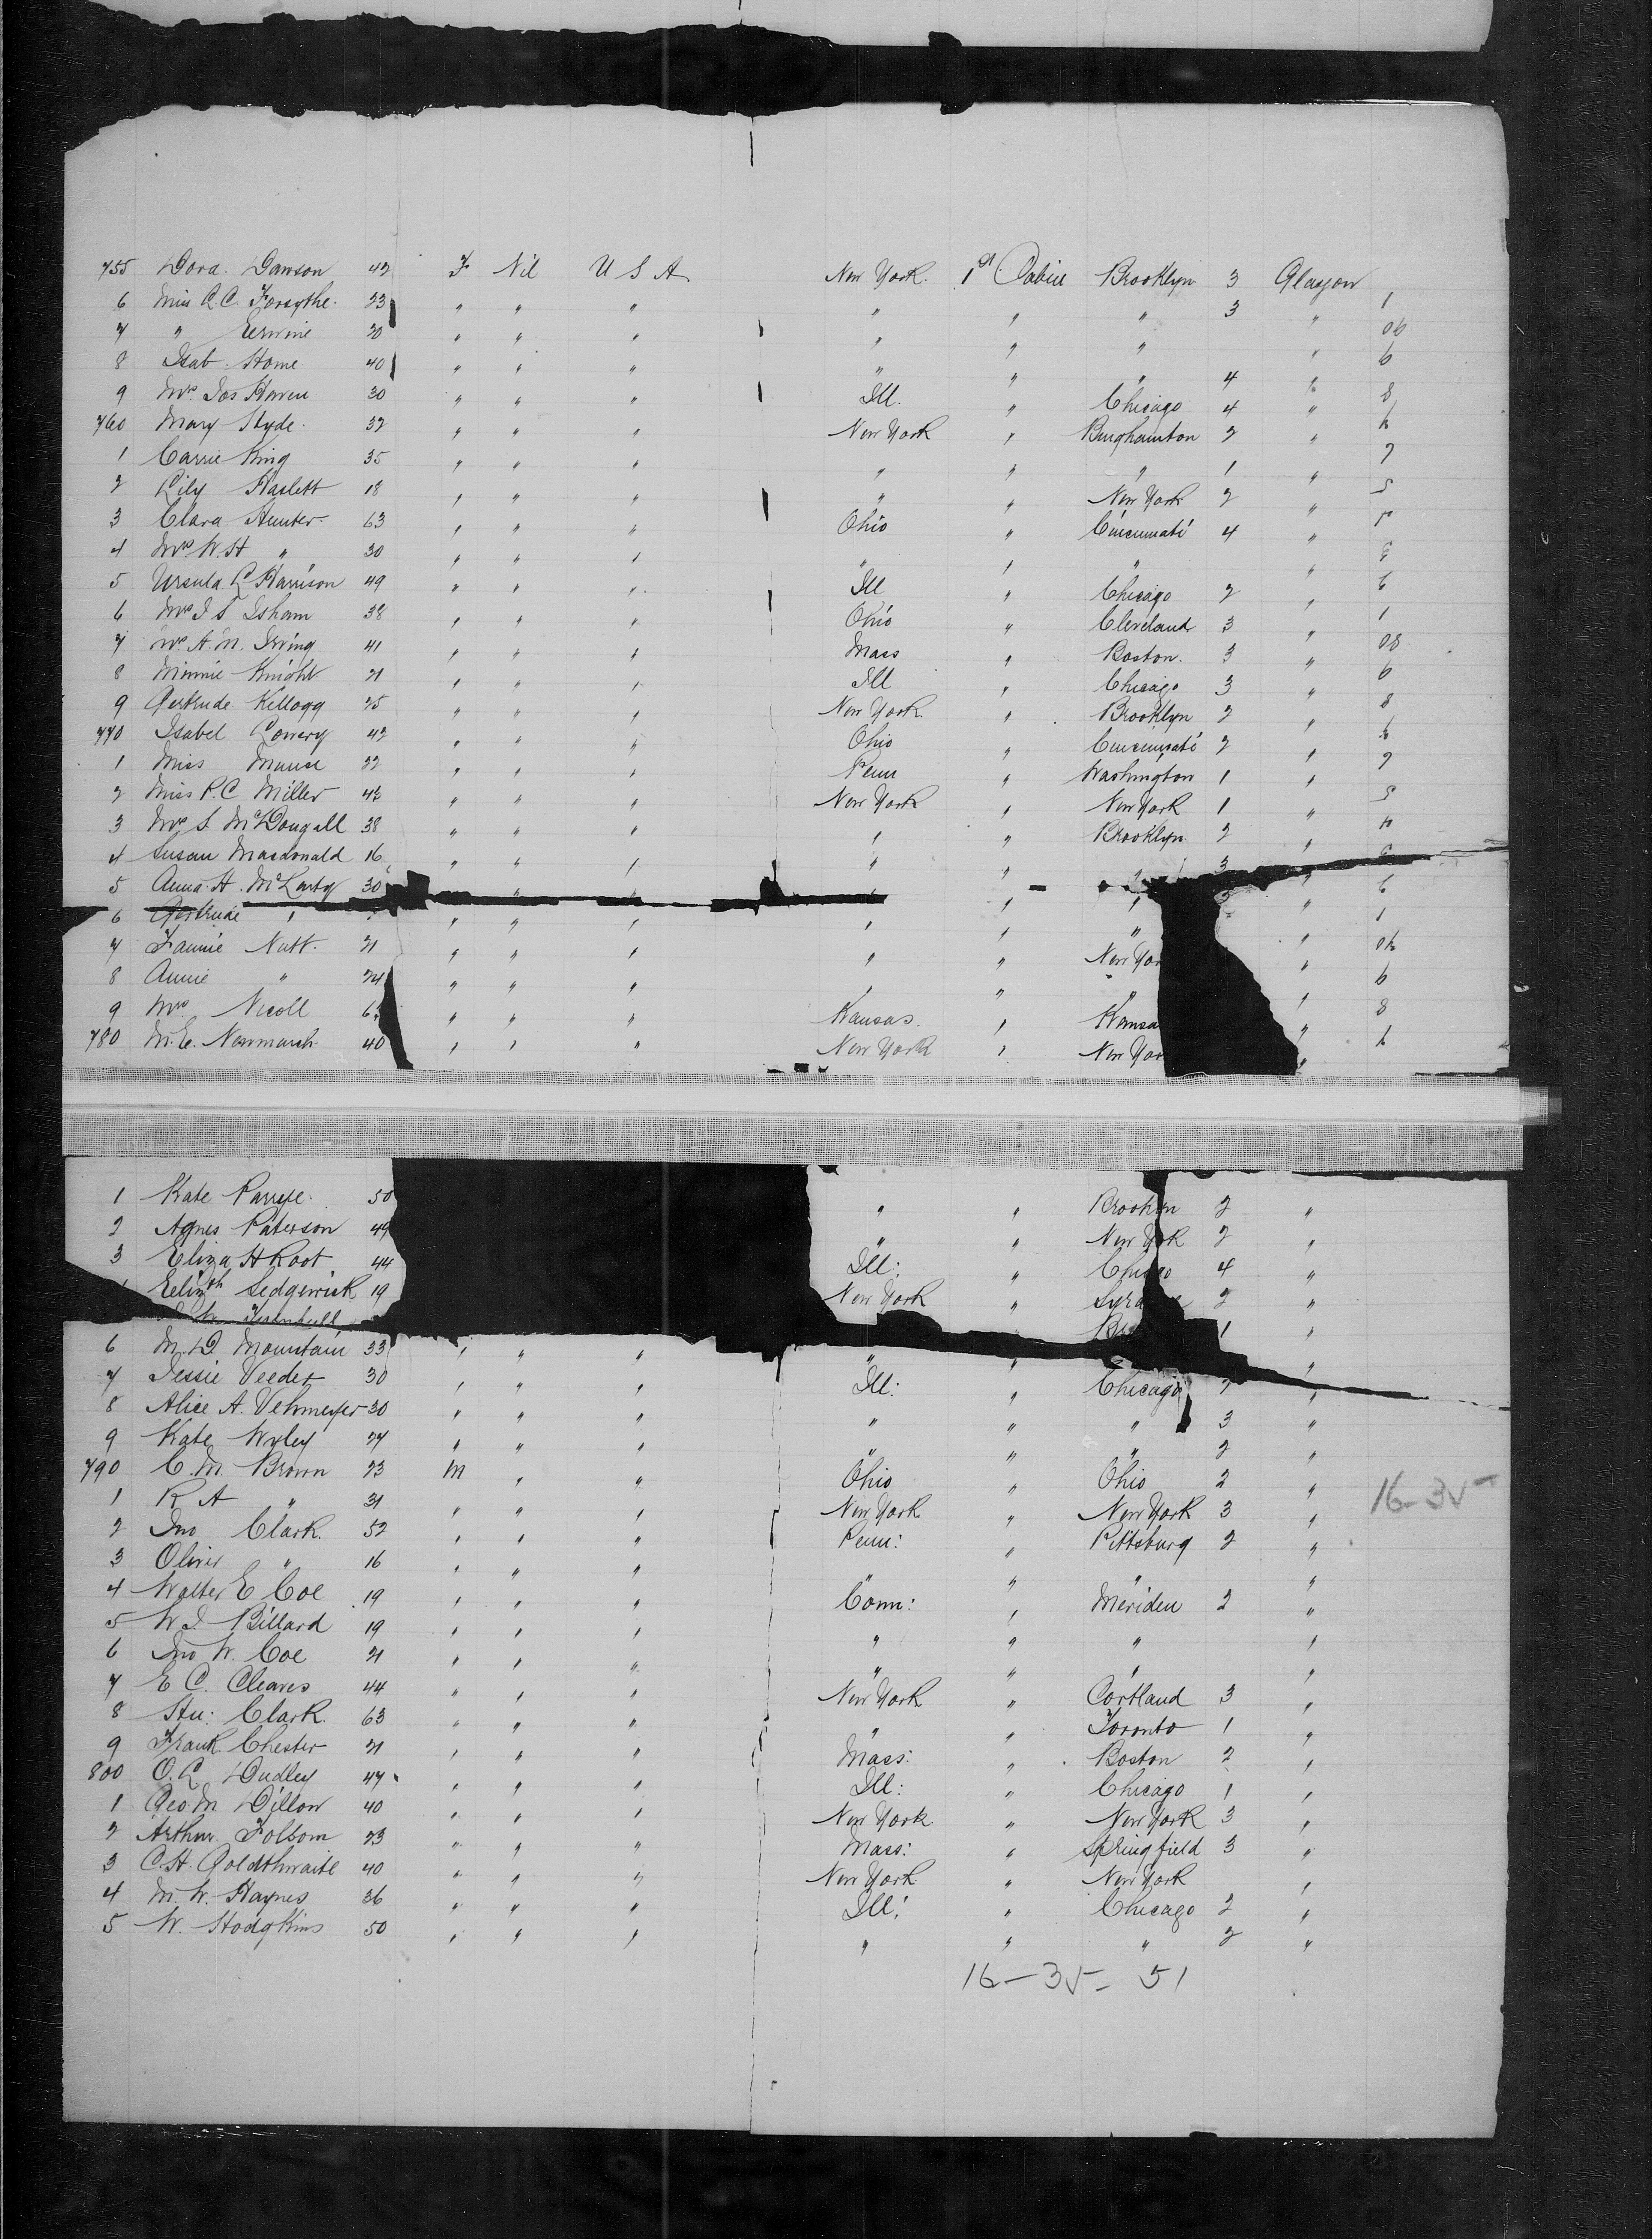 755 Dora. Dawson 42 F Nil U S A New York. 1st Cabin Brooklyn 3 Glasgow
6 Miss A.C. Forsythe. 23 " " " " " " 3 " 1
7 " Erwine 20 " " " " " " "
8 Isab. Home 40 " " " " " " 4 "
9 Mrs Jos Haven 30 " " " Ill. " Chicago 4 "
760 Mary Hyde. 32 " " " New York " Binghamton 2 "
1 Carrie King 35 " " " " " " 1 "
2 Lily Haslett 18 " " " " " New York 2 "
3 Clara Hunter. 63 " " " Ohio " Cincinnati 4 "
4 Mrs W. H " 30 " " " " " " "
5 Ursula L Harrison 49 " " " Ill " Chicago 2 "
6 Mrs J S Isham 38 " " " Ohio " Cleveland 3 "
7 Mrs A. M. Irving 41 " " " Mass " Boston. 3 "
8 Minnie Knight 21 " " " Ill " Chicago 3 "
9 Gertrude Kellogg 25 " " " New York " Brooklyn 2 "
770 Isabel Lowery 42 " " " Ohio " Cincinnati 2 "
1 Miss 22 " " " Penn " Washington 1 "
2 Miss P. C. Miller 42 " " " New York " New York 1 "
3 Mrs S. McDougall 38 " " " " " Brooklyn 2 "
4 Susan Macdonald 16 " " " " " 3 "
5 Anna. H. 30 " " " " "
6 Gertrude " " " " " " " "
7 Fannie Nutt. 21 " " " " " New Yor "
8 Annie " 24 " " " " " " "
9 Mrs Nicoll " " " Kansas. " Kansa "
780 M. E. Newmarch. 40 " " " New York " New Yor "
1 Kate 50 " " Brooklyn 2 "
2 Agnes Paterson 49 " " New York 2 "
3 Eliza H Root 44 Ill: " Chicago 4 "
Elizth Sedgwick 19 New York " 2 "
1 "
6 M. D. Mountain 33 " " " " " "
7 Jessie Veeder 30 " " " Ill: " Chicago 2 "
8 Alice A. Vehmeyer 30 " " " " " " 3 "
9 Kate Wyley 24 " " " " " " 2 "
790 C. M. Brown 23 M " " Ohio " Ohio 2 "
1 R A " 31 " " " New York " New York 3 " 16-35
2 Jno Clark. 52 " " " Penn: " Pittsburg 2 "
3 Oliver " 16 " " " " " " "
4 Walter E Coe 19 " " " Conn: " Meriden 2 "
5 W. I. Billard 19 " " " " " " "
6 Jno W. Coe 21 " " " " " " "
7 E C. Cleaves 44 " " " New York " Cortland 3 "
8 Clark. 63 " " " " " Toronto 1 "
9 Frank Chester 21 " " " Mass: " Boston 2 "
800 O. L Dudley 47 " " " Ill: " Chicago 1 "
1 Geo M Dillow 40 " " " New York " New York 3 "
2 Arthur Folsom 23 " " " Mass: " Springfield 3 "
3 C. H. Goldthwaite 40 " " " New York " New York "
4 M. W. Haynes 36 " " " Ill: " Chicago 2 "
5 W. Hodgkins 50 " " " " " " 2 "
16-35- 51